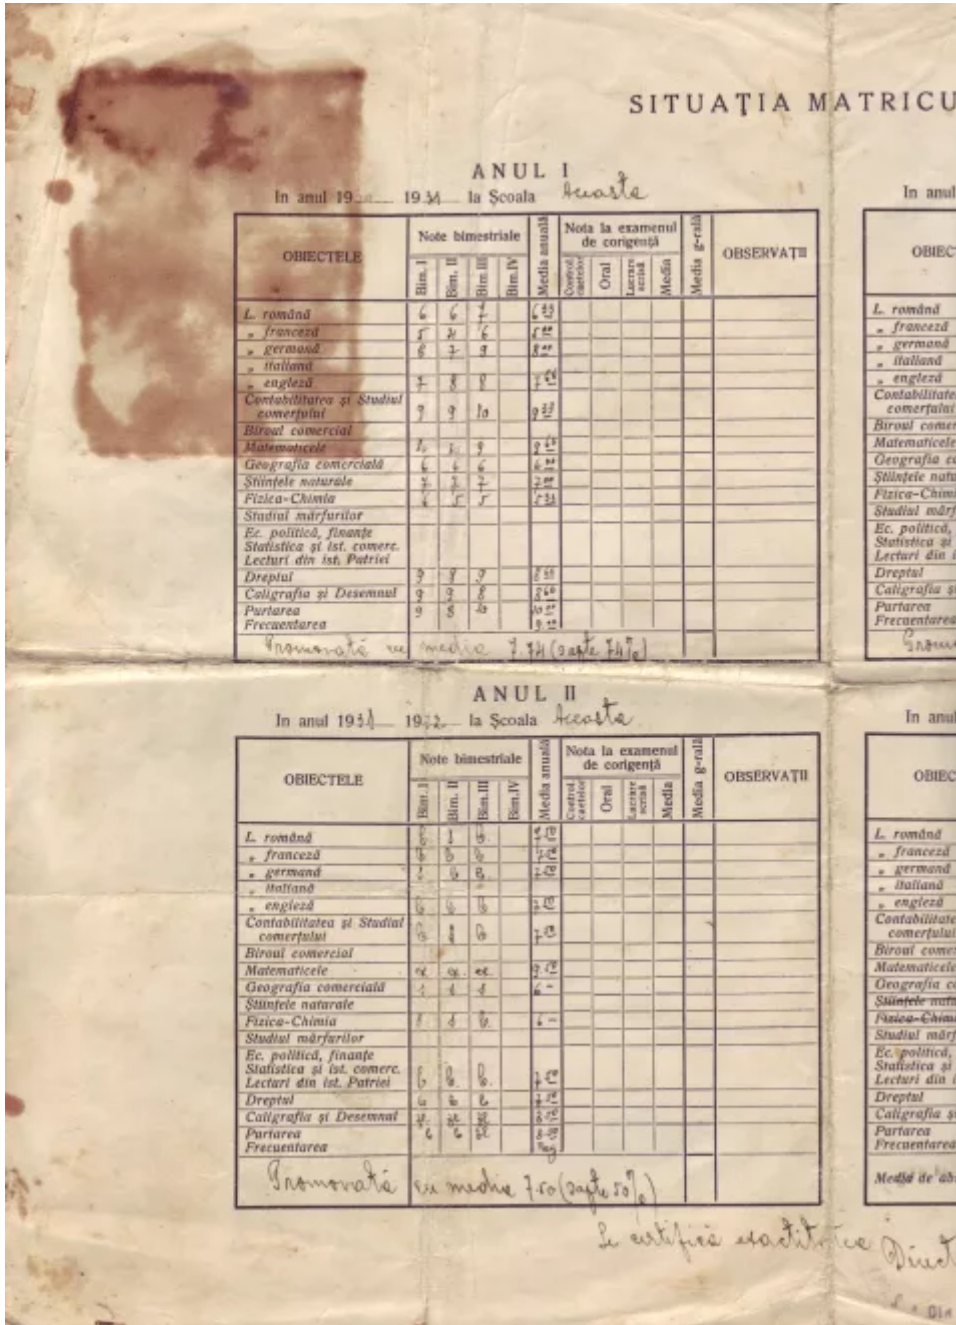 SITUAȚIA MATRICU
ANUL I
In anul 19 1931 la Școala Aceasta
OBIECTELE
Note bimestriale
Bim. I
Bim. II
Bim. III
Bim. IV
Media anuală
Nota la examenul de corigență
Controlul caetelor
Oral
Lucrare scrisă
Media
Media g-rală
OBSERVAȚII
L. română 6 6 7 6 33
„ franceză 5 6 5
„ germană 8 7 9 8
„ italiană
„ engleză 7 8 8 7
Contabilitatea și Studiul
comerțului 9 9 10 9 33
Biroul comercial
Matematicele 9
Geografia comercială 6 6 6 6
Științele naturale 7 7 7 7
Fizica-Chimia 6 5 5 5 33
Studiul mărfurilor
Ec. politică, finanțe
Statistica și ist. comerc.
Lecturi din ist. Patriei
Dreptul 9 8 9 8
Caligrafia și Desemnul 9 9 8 8
Purtarea 9 8 10 10
Frecuentarea 9
Promovată cu media 7.74 (șapte 74%)
ANUL II
In anul 1931 1932 la Școala Aceasta
OBIECTELE
Note bimestriale
Bim. I
Bim. II
Bim. III
Bim. IV
Media anuală
Nota la examenul de corigență
Controlul caetelor
Oral
Lucrare scrisă
Media
Media g-rală
OBSERVAȚII
L. română 7 50
„ franceză 7 50
„ germană 7 50
„ italiană
„ engleză 7 50
Contabilitatea și Studiul
comerțului 7 50
Biroul comercial
Matematicele 9 50
Geografia comercială 6 –
Științele naturale
Fizica-Chimia 6 –
Studiul mărfurilor
Ec. politică, finanțe
Statistica și ist. comerc.
Lecturi din ist. Patriei 7 50
Dreptul 7 50
Caligrafia și Desemnul 8 50
Purtarea 8 50
Frecuentarea
Promovată cu media 7.50 (șapte 50%)
Se certifică exactitatea
Direct
In anul
OBIEC
L. română
„ franceză
„ germană
„ italiană
„ engleză
Contabilitate
comerțului
Biroul comer
Matematicele
Geografia co
Științele natu
Fizica-Chimi
Studiul mărf
Ec. politică,
Statistica și
Lecturi din i
Dreptul
Caligrafia și
Purtarea
Frecuentarea
Promo
In anul
OBIEC
L. română
„ franceză
„ germană
„ italiană
„ engleză
Contabilitate
comerțului
Biroul comer
Matematicele
Geografia co
Științele natu
Fizica-Chimi
Studiul mărf
Ec. politică,
Statistica și
Lecturi din i
Dreptul
Caligrafia și
Purtarea
Frecuentarea
Media de abs